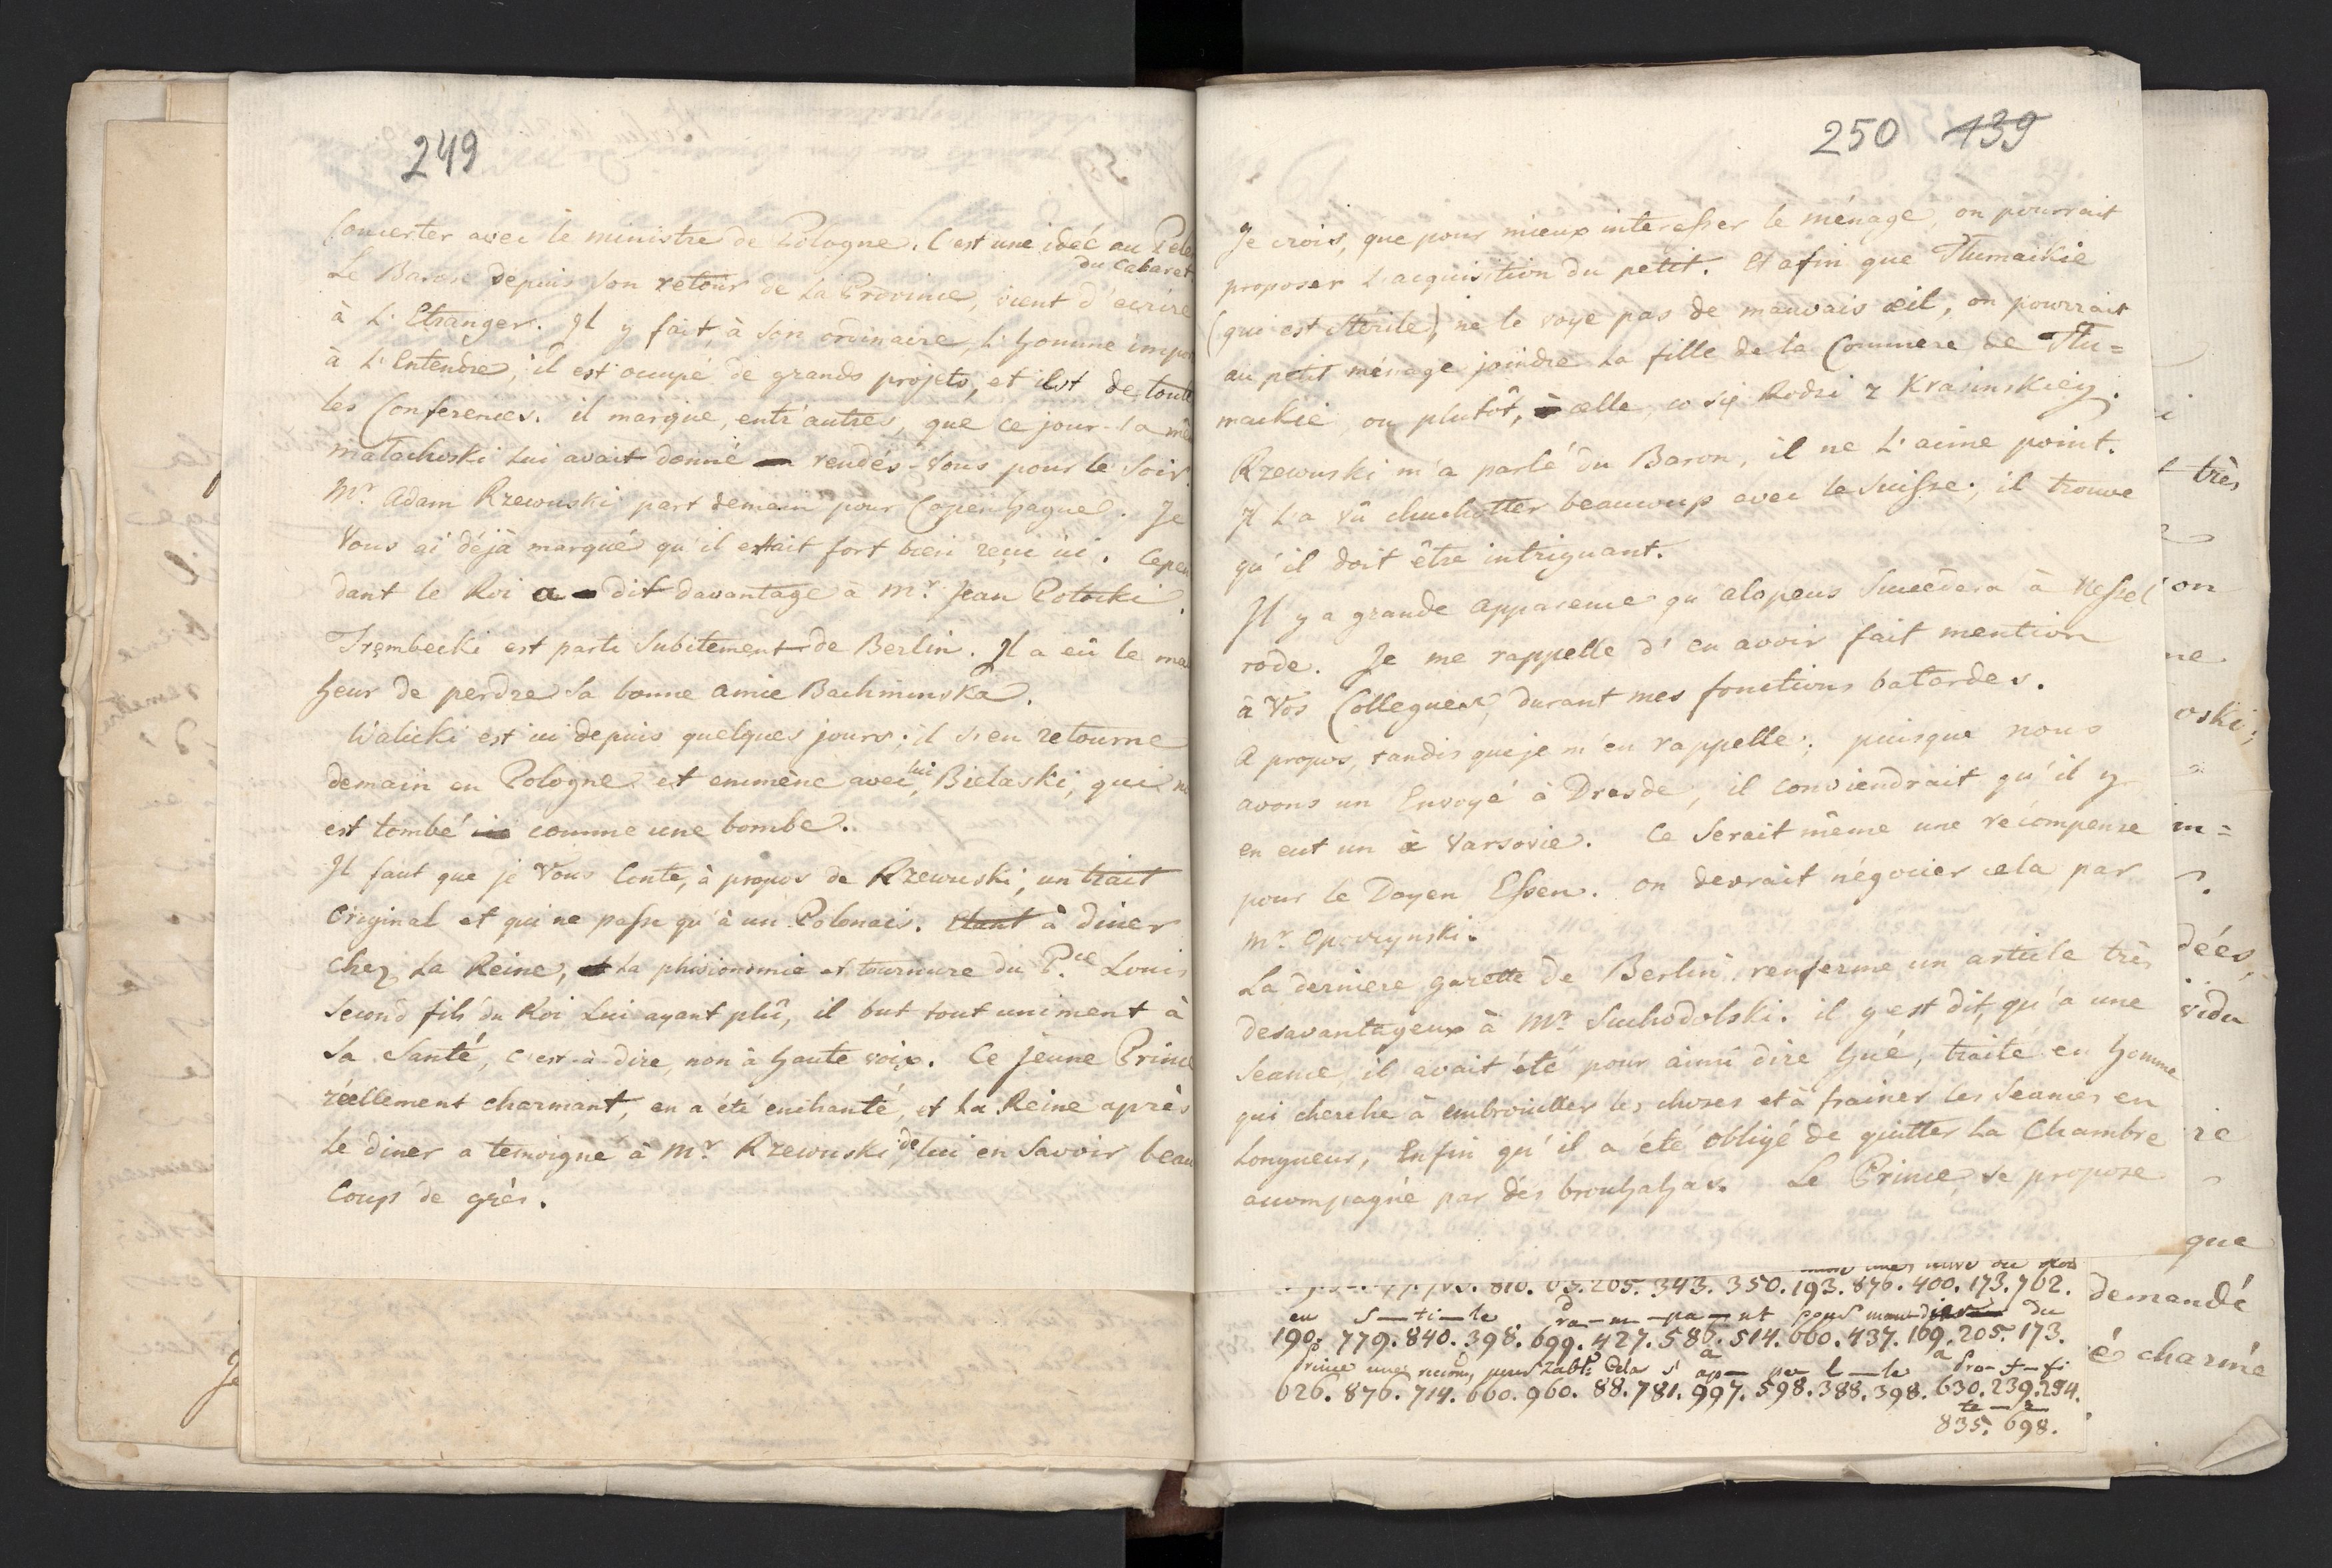 249
Concerter avec le ministre de Pologne. C'est une idée au Pele
du Cabaret.
Le Baron depuis son retour de la Province, vient d'ecrire
à L'Etranger. Il y fait, à son ordinaire, L'homme impor
à L'Entendre, il est occupé de grands projets, et il est de toute
les Conferences. il marque, entr'autres, que ce jour-la mê
Malachoski lui avait donné rendés-Vous pour le Soir.
Mr. Adam Rzewuski part demain pour Copenhague. Je
Vous ai déjà marqué qu'il estait fort bien reçu ici. Cepen
dant le Roi a dit davantage à Mr. Jean Potocki.
Trembecki est parti Subitement de Berlin. Il a eû le mal
heur de perdre sa bonne amie Bachminska.
Walicki est ici depuis quelques jours; il s'en retourne
demain en Pologne et emmène avec lui Bielaski, qui
est tombé comme une bombe.
Il faut que je Vous Conte, à propos de Rzewuski, un trait
Original et qui ne passe qu'à un Polonais. Etant à diner
chez La Reine, la phisionomie et tournure du P.ce Louis
Second fils du Roi Lui ayant plû, il but tout uniment à
Sa Santé, c'est-à-dire, non à haute voix. Ce jeune Prince
réellement charmant, en a été enchanté, et La Reine après
Le diner a temoigné à Mr. Rzewuski de lui en Savoir beau
Coup de grès.
250 139
Je crois, que pour mieux interesser le ménage, on pourrait
proposer L'acquisition du petit. Et afin que Tlumackie
(qui est Sterile), ne le voye pas de mauvais œil, on pourrait
au petit ménage joindre la fille de la Commere de Tlu=
mackie, ou plutôt, à celle, co się Rodzi z Krasinskiey.
Rzewuski m'a parlé du Baron, il ne L'aime point.
Il L'a vû chuchotter beaucoup avec le Suisse; il trouve
qu'il doit être intriguant.
Il y a grande apparence qu'alopeus Succédera à Nessel
rode. Je me rappelle d'en avoir fait mention
à Vos Collegues, durant mes fonctions batardes.
A propos, tandis que je m'en rappelle; puisque nous
avons un Envoyé à Dresde, il conviendrait qu'il y
en eut un à Varsovie. Ce Serait même une récompense
pour le Doyen Essen. on devrait négocier cela par
Mr. Opoczynski.
La derniere gazette de Berlin, renferme un article très
desavantageux à Mr. Suchodolski. il y est dit, qu'a une
Seance, il avait été pour ainsi dire hué, traité en homme
qui cherche à embrouiller les choses et à trainer les Seances en
Longueur, Enfin qu'il a été obligé de quitter La Chambre
accompagné par des brouhahas. Le Prince, se propose
810. 63. 205. 343. 350. 193. 876. 400. 173. 762.
en s—ti—le du
190. 779. 840. 398. 699. 427. 586. 514. 660. 437. 169. 205. 173.
Prince Cela s' ap— pe l—le à Pro—f—fi
626. 876. 714. 660. 960. 88. 781. 997. 598. 388. 398. 630. 239. 294.
te—r
835. 698.
très
on
ne
oski;
in=
dées,
vidu
re
que
demandé
é charmé